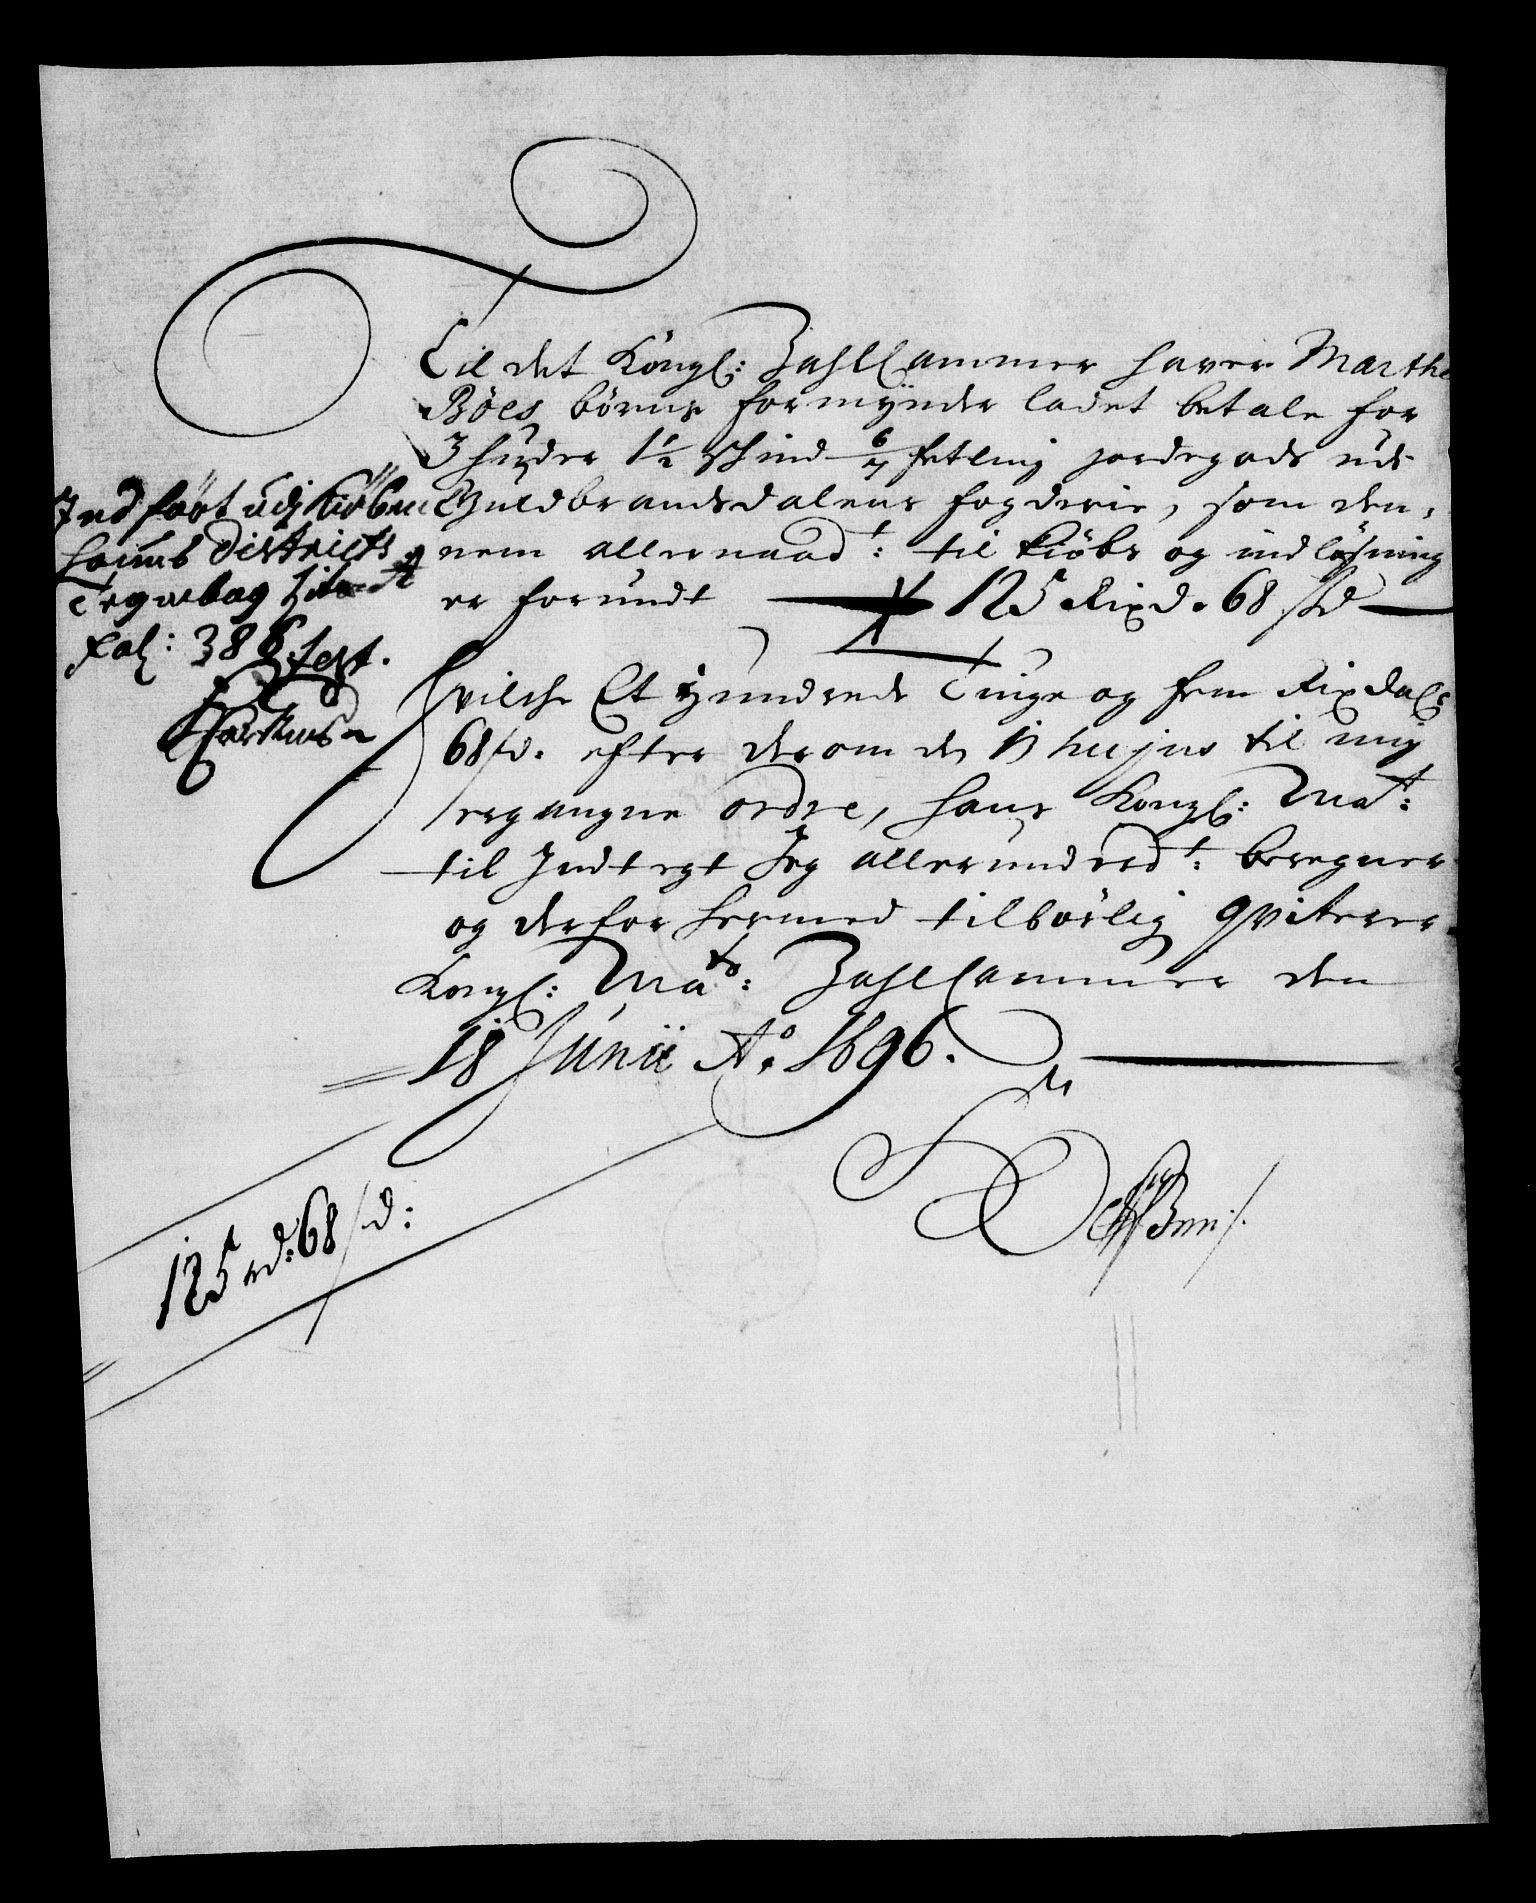 Til det Kongl: Zahlkammer haver Marthe
Böes börns formynder ladet betale for
3 huder 1½ schind 6/7 fetling jordegods udi
Guldbrandsdalens fogderie, som den,
nem allernaad t: til kiöbs og indlösning
er forundt 125 Rixd. 68 sk
hvilche Et Hundrede Tiuge og fem Rixdal:
68 sk. efter derom de 13 hujus til mig
ergangne ordre, hans Kongl: Ma t:
til Indtegt Jeg allerunderd t: beregner
og derfor hermed tilbörlig qviterer
Kongl: Ma ts: Zahlkammer den
18 Junii Ao 1696.
Indfört udj Kiöben
hafns districts
Tegnebog
Fol: 386
125 rd: 68 sk: